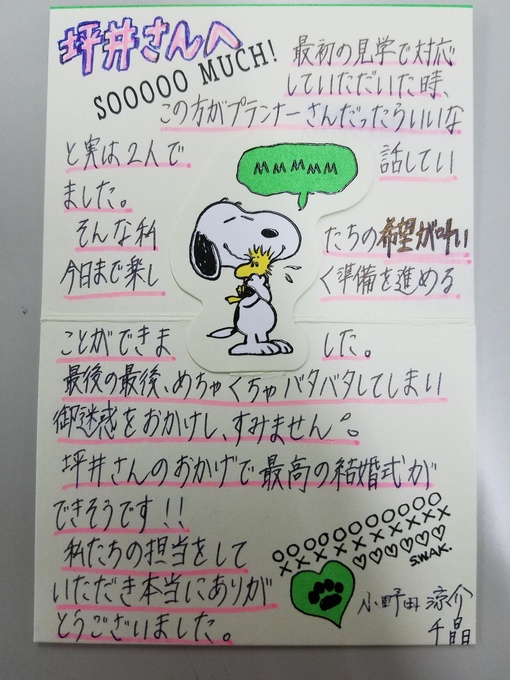 坪井さんへ
SOOOOO MUCH!
最初の見学で対応
していただいた時、
この方がプランナーさんだったらいいな
と実は2人で話してい
ました。
そんな私たちの希望が叶い
今日まで楽しく準備を進める
ことができました。
MMMMM
最後の最後、めちゃくちゃバタバタしてしまい
御迷惑をおかけし、すみません。
坪井さんのおかげで最高の結婚式が
できそうです!!
私たちの担当をして
いただき本当にありが
とうございました。
OOOOOOOOOOO
XXXXXXXXXXX
♡♡♡♡♡♡
S.W.A.K.
小野田 涼介
千晶